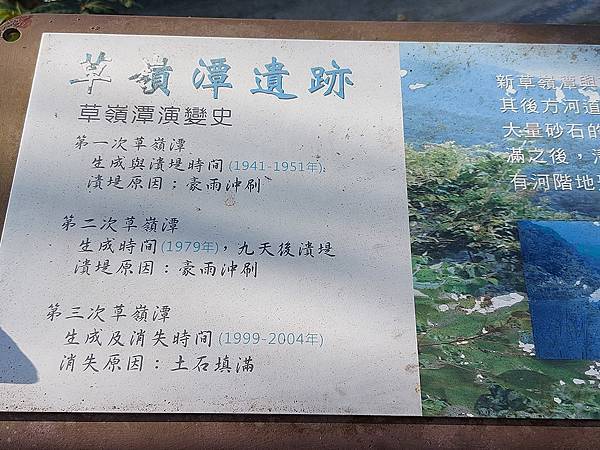 草嶺潭遺跡
草嶺潭演變史
第一次草嶺潭
生成與潰堤時間(1941-1951年)
潰堤原因：豪雨沖刷
第二次草嶺潭
生成時間(1979年)，九天後潰堤
潰堤原因：豪雨沖刷
第三次草嶺潭
生成及消失時間(1999-2004年)
消失原因：土石填滿
新草嶺潭與
其後方河道
大量砂石的
滿之後，
有河階地